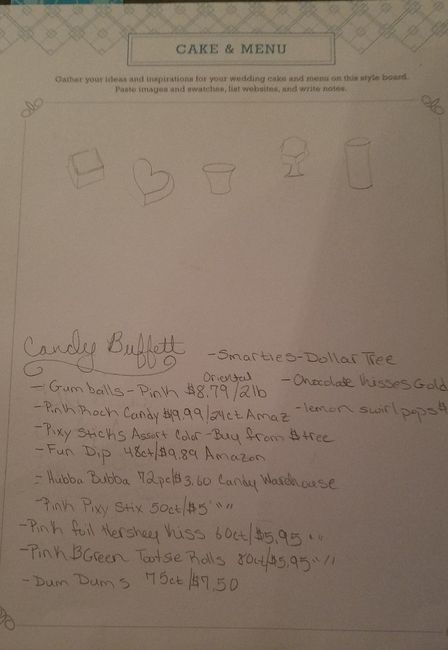 CAKE & MENU
Gather your ideas and inspirations for your wedding cake and menu on this style board.
Paste images and swatches, list websites, and write notes.
Candy Buffett
- Smarties - Dollar Tree
- Gum balls - Pink $8.79/2lb Oriental
- Chocolate Kisses Gold
- Pink Rock Candy $19.99/24ct Amaz
- lemon swirl pops $
- Pixy Sticks Assort Color - Buy from $tree
- Fun Dip 48ct/$9.89 Amazon
- Hubba Bubba 72pc/$3.60 Candy Warehouse
- Pink Pixy Stix 50ct/$5 " "
- Pink foil Hershey Kiss 60ct/$5.95 " "
- Pink & Green Tootsie Rolls 80ct/$5.95 " "
- Dum Dums 75ct/$7.50